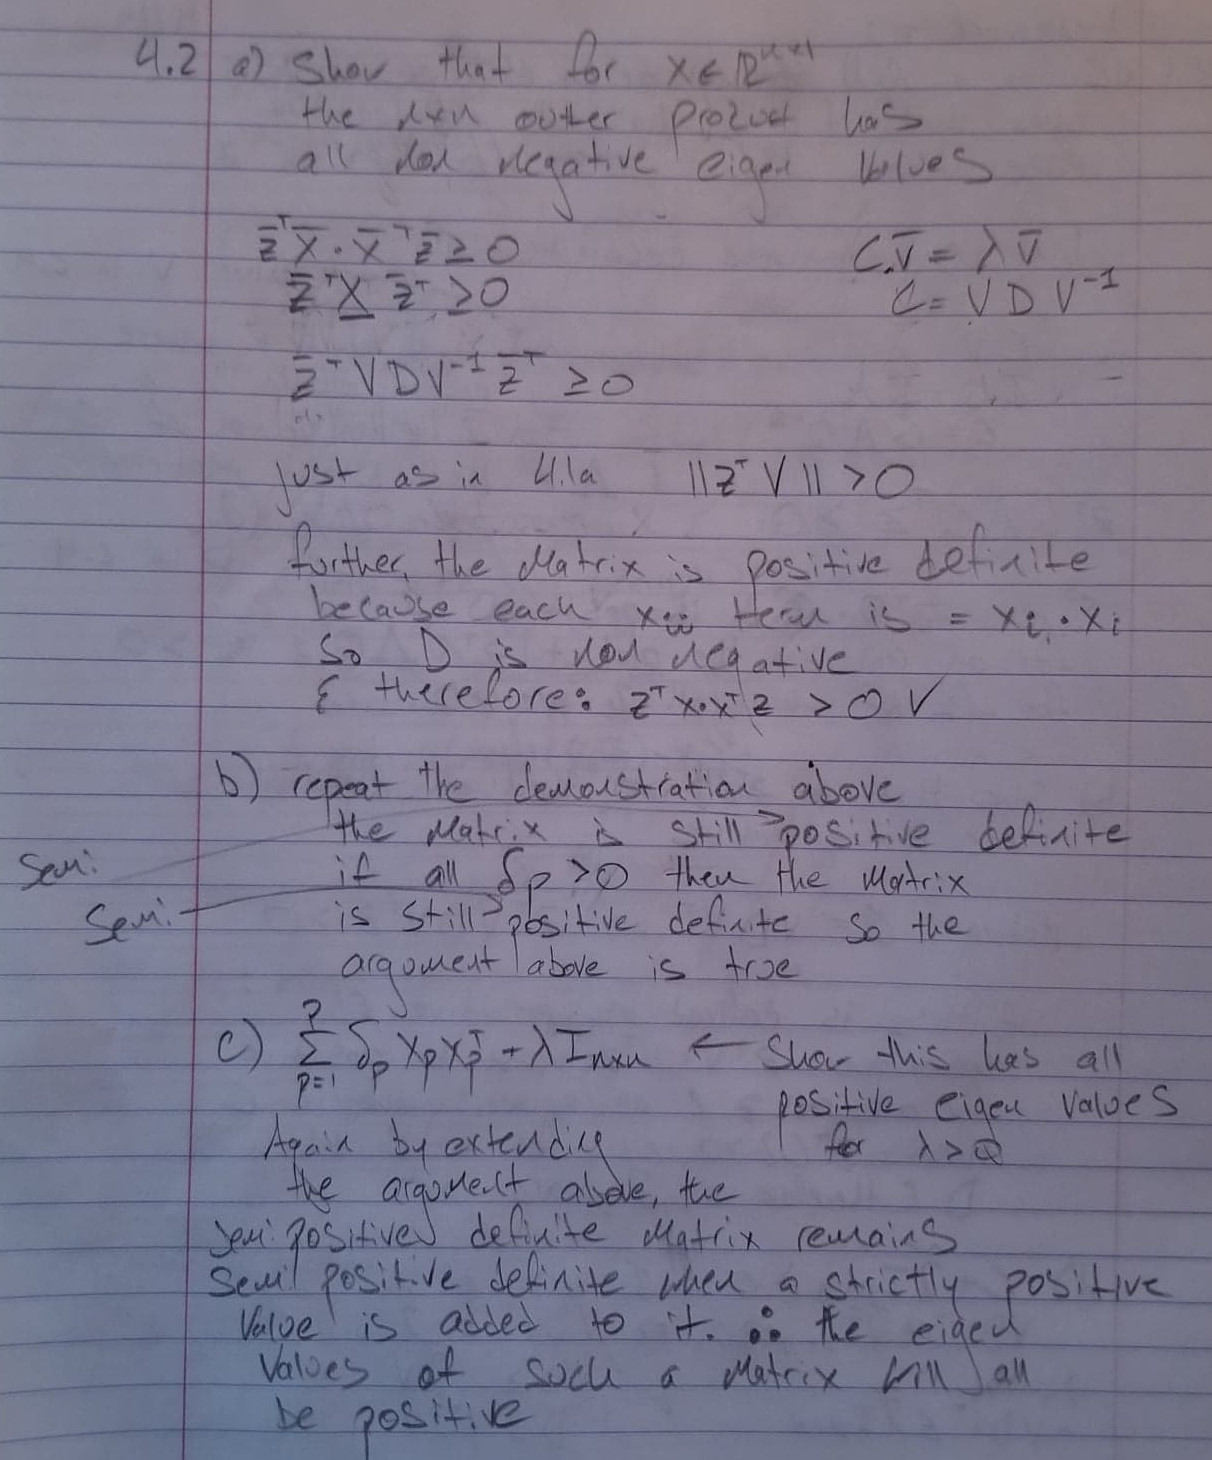 4.2 a) Show that for x ∈ ℝⁿˣ¹
the nxn outter product has
all non negative eigen values
z̄ᵀx̄·x̄ᵀz̄ ≥ 0
C.v̄ = λv̄
z̄ᵀX z̄ᵀ ≥ 0
C = VDV⁻¹
z̄ᵀVDV⁻¹z̄ᵀ ≥ 0
just as in 4.1a ||zᵀV|| > 0
further, the matrix is positive definite
because each xᵢᵢ term is = xᵢ·xᵢ
So D is non negative
& therefore: zᵀx·xᵀz > 0 ✓
b) repeat the demonstration above
the matrix is still positive definite
Semi
if all δp > 0 then the matrix
Semi
is still positive definite so the
argument above is true
c) Σ_{p=1}^{P} δp xp xpᵀ + λIₙₓₙ ← Show this has all
positive eigen values
for λ > 0
Again by extending
the argument above, the
semi positive definite matrix remains
semi positive definite when a strictly positive
value is added to it. ∴ the eigen
values of such a matrix will all
be positive